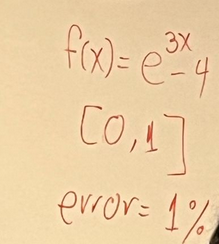 f(x)=e^{3x}-4
[0,1]
error=1%